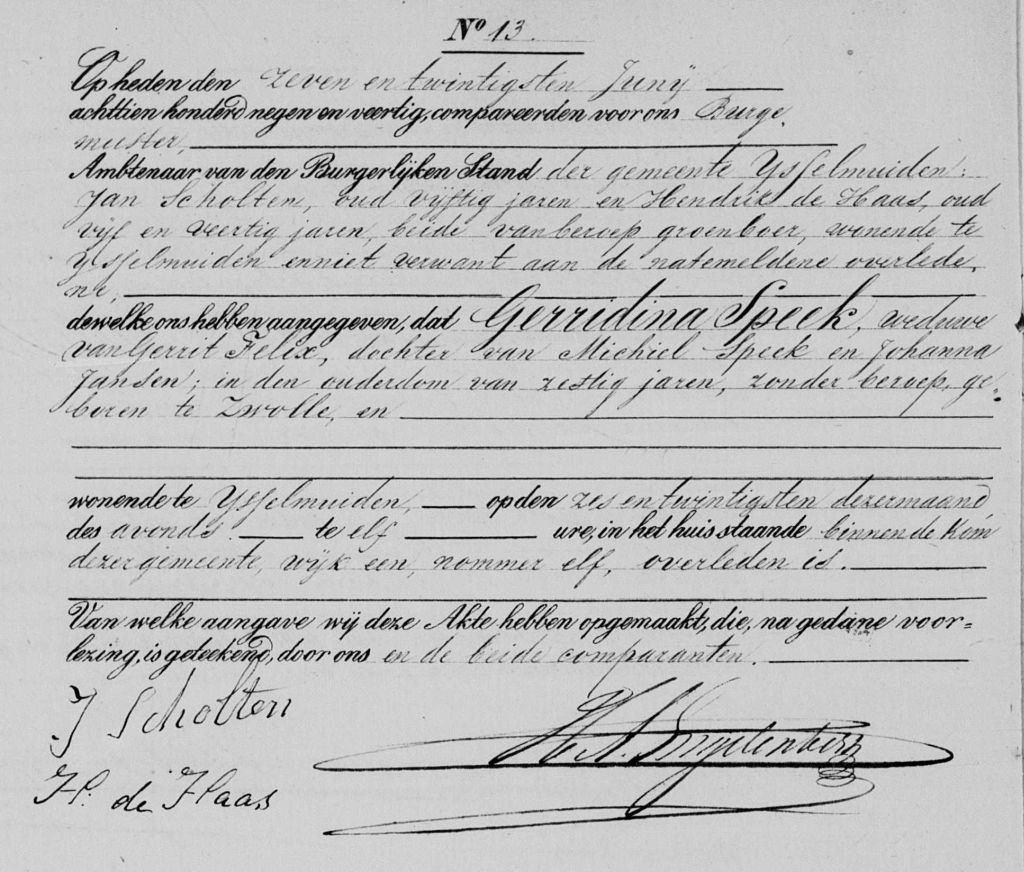 Nº 13.
Op heden den zeven en twintigsten Junij
achttien honderd negen en veertig, compareerden voor ons Burge,
meester,
Ambtenaar van den Burgerlijken Stand der gemeente IJsselmuiden:
Jan Scholten, oud vijftig jaren en Hendrik de Haas, oud
vijf en veertig jaren, beide van beroep groenboer, wonende te
IJsselmuiden en niet verwant aan de natemeldene overlede,
ne,
dewelke ons hebben aangegeven, dat Gerridina Speek, weduwe
van Gerrit Felix, dochter van Michiel Speek en Johanna
Jansen; in den ouderdom van zestig jaren, zonder beroep, ge,
boren te Zwolle, en
wonende te IJsselmuiden, op den zes en twintigsten dezer maand
des avonds te elf ure, in het huis staande binnen de Kom
dezer gemeente, wijk een, nommer elf, overleden is.
Van welke aangave wij deze Akte hebben opgemaakt, die, na gedane voor=
lezing, is geteekend, door ons en de beide comparanten.
J Scholten
H. de Haas